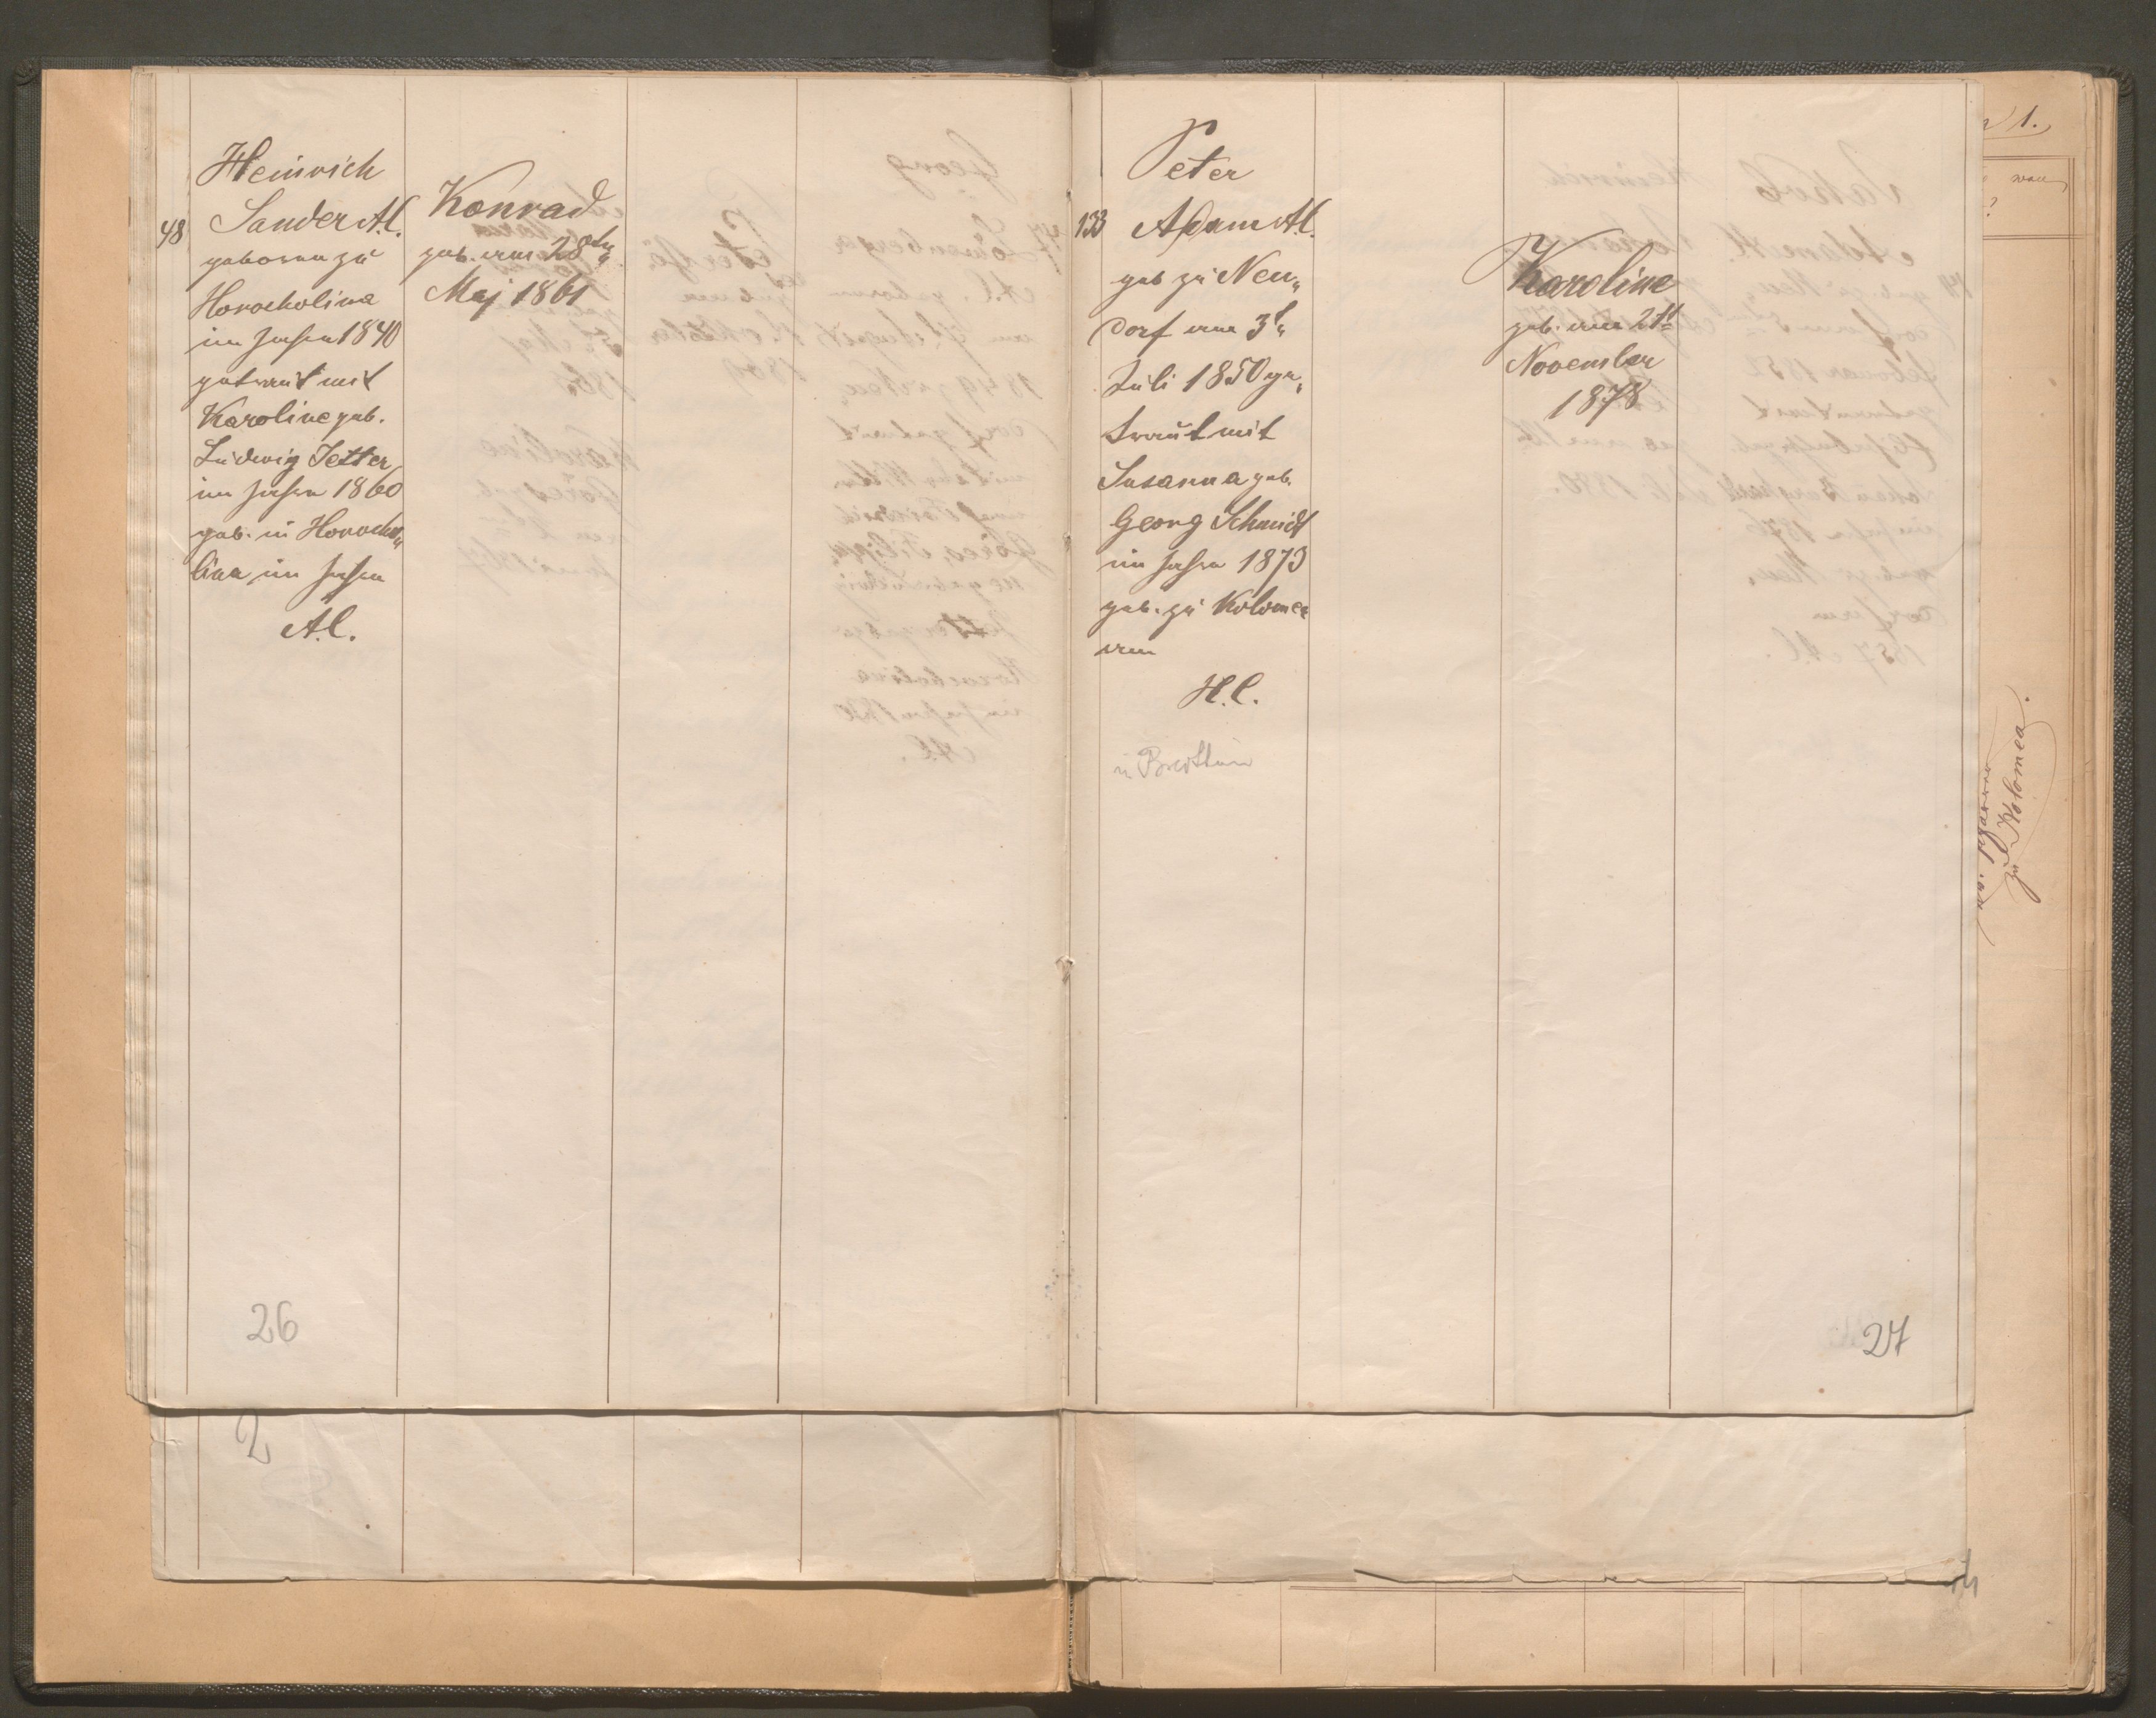 Heinrich
48 Sander A.C.
geboren zu
Horocholina
im Jahre 1840
getraut mit
Karoline geb.
Ludwig Jetter
im Jahre 1860
geb. in Horocho„
lina, im Jahre
A.C.
Konrad
geb. am 28ten
Maj 1861
26
2
Peter
133 Adam A.C.
geb zu Neu„
dorf am 3t„
Juli 1850 ge„
traut mit
Susanna geb.
Georg Schmidt
im Jahre 1873
geb. zu Kolomea
am
H.C.
Karoline
geb. am 21t
November
1878
27
1.
zu Kolomea.